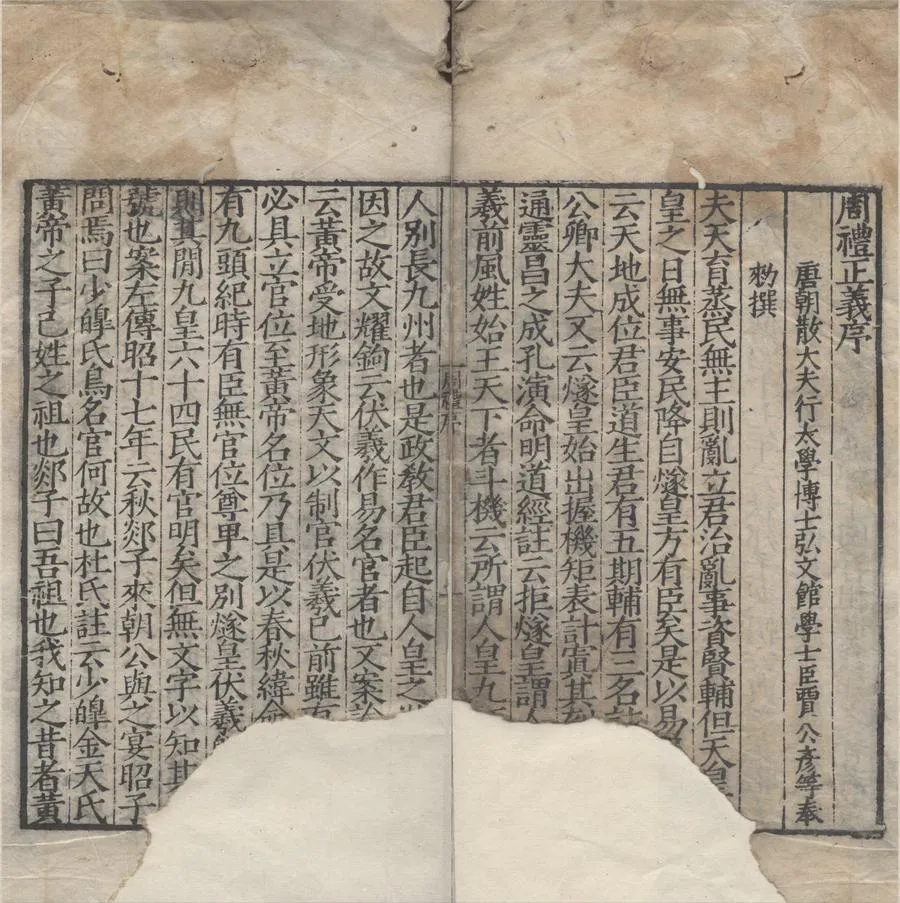 周禮正義序
唐朝散大夫行太學博士弘文館學士臣賈公彥等奉
勑撰
夫天育蒸民無主則亂立君治亂事資賢輔但天皇
皇之日無事安民降自燧皇方有臣矣是以易
云天地成位君臣道生君有五期輔有三名
公卿大夫又云燧皇始出握機矩表計寘其
通靈昌之成孔演命明道經註云拒燧皇謂人
羲前風姓始王天下者斗機云所謂人皇九
周禮序
人別長九州者也是政教君臣起自人皇之
因之故文耀鉤云伏羲作易名官者也又案論
云黃帝受地形象天文以制官伏羲已前雖有
必具立官位至黃帝名位乃具是以春秋緯命
有九頭紀時有臣無官位尊卑之別燧皇伏羲
則其閒九皇六十四民有官明矣但無文字以知其
號也案左傳昭十七年云秋郯子來朝公與之宴昭子
問焉曰少皞氏鳥名官何故也杜氏註云少皞金天氏
黃帝之子己姓之祖也郯子曰吾祖也我知之昔者黃